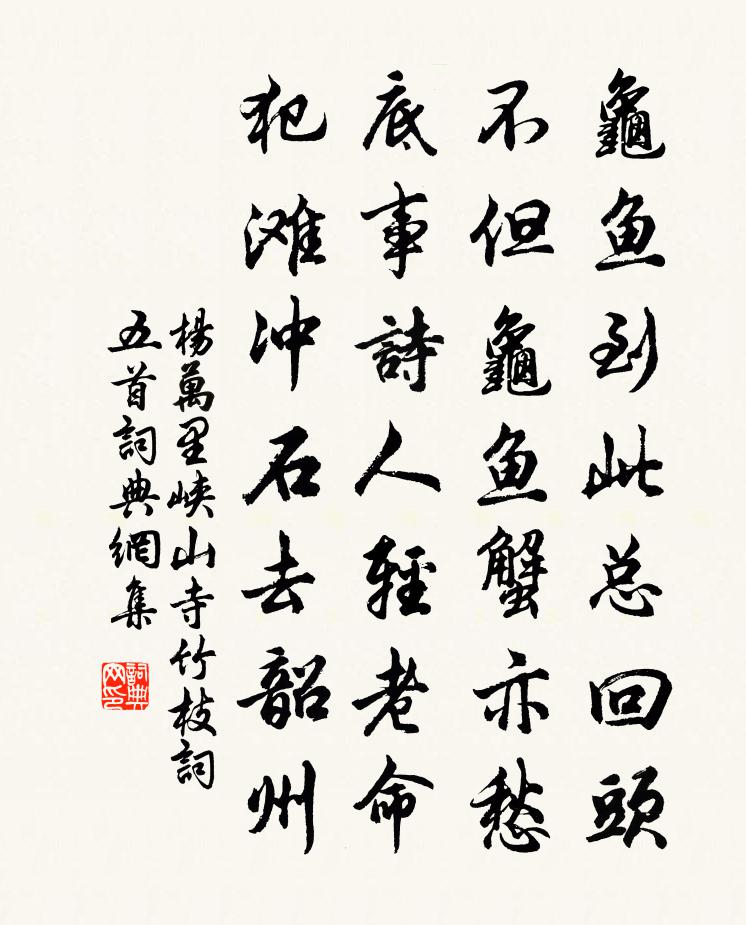 龜鱼到此总回頭
不但龜鱼蟹亦愁
底事詩人輕老命
犯滩冲石去韶州
楊萬里峡山寺竹枝詞
五首詞典網集
詞典网印